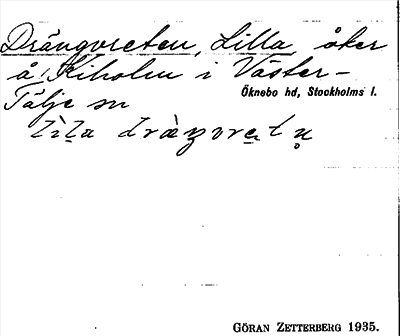 Drängvreten, Lilla åker
å Kiholm i Väster-
Tälje sn Öknebo hd, Stockholms l.
GÖRAN ZETTERBERG 1935.